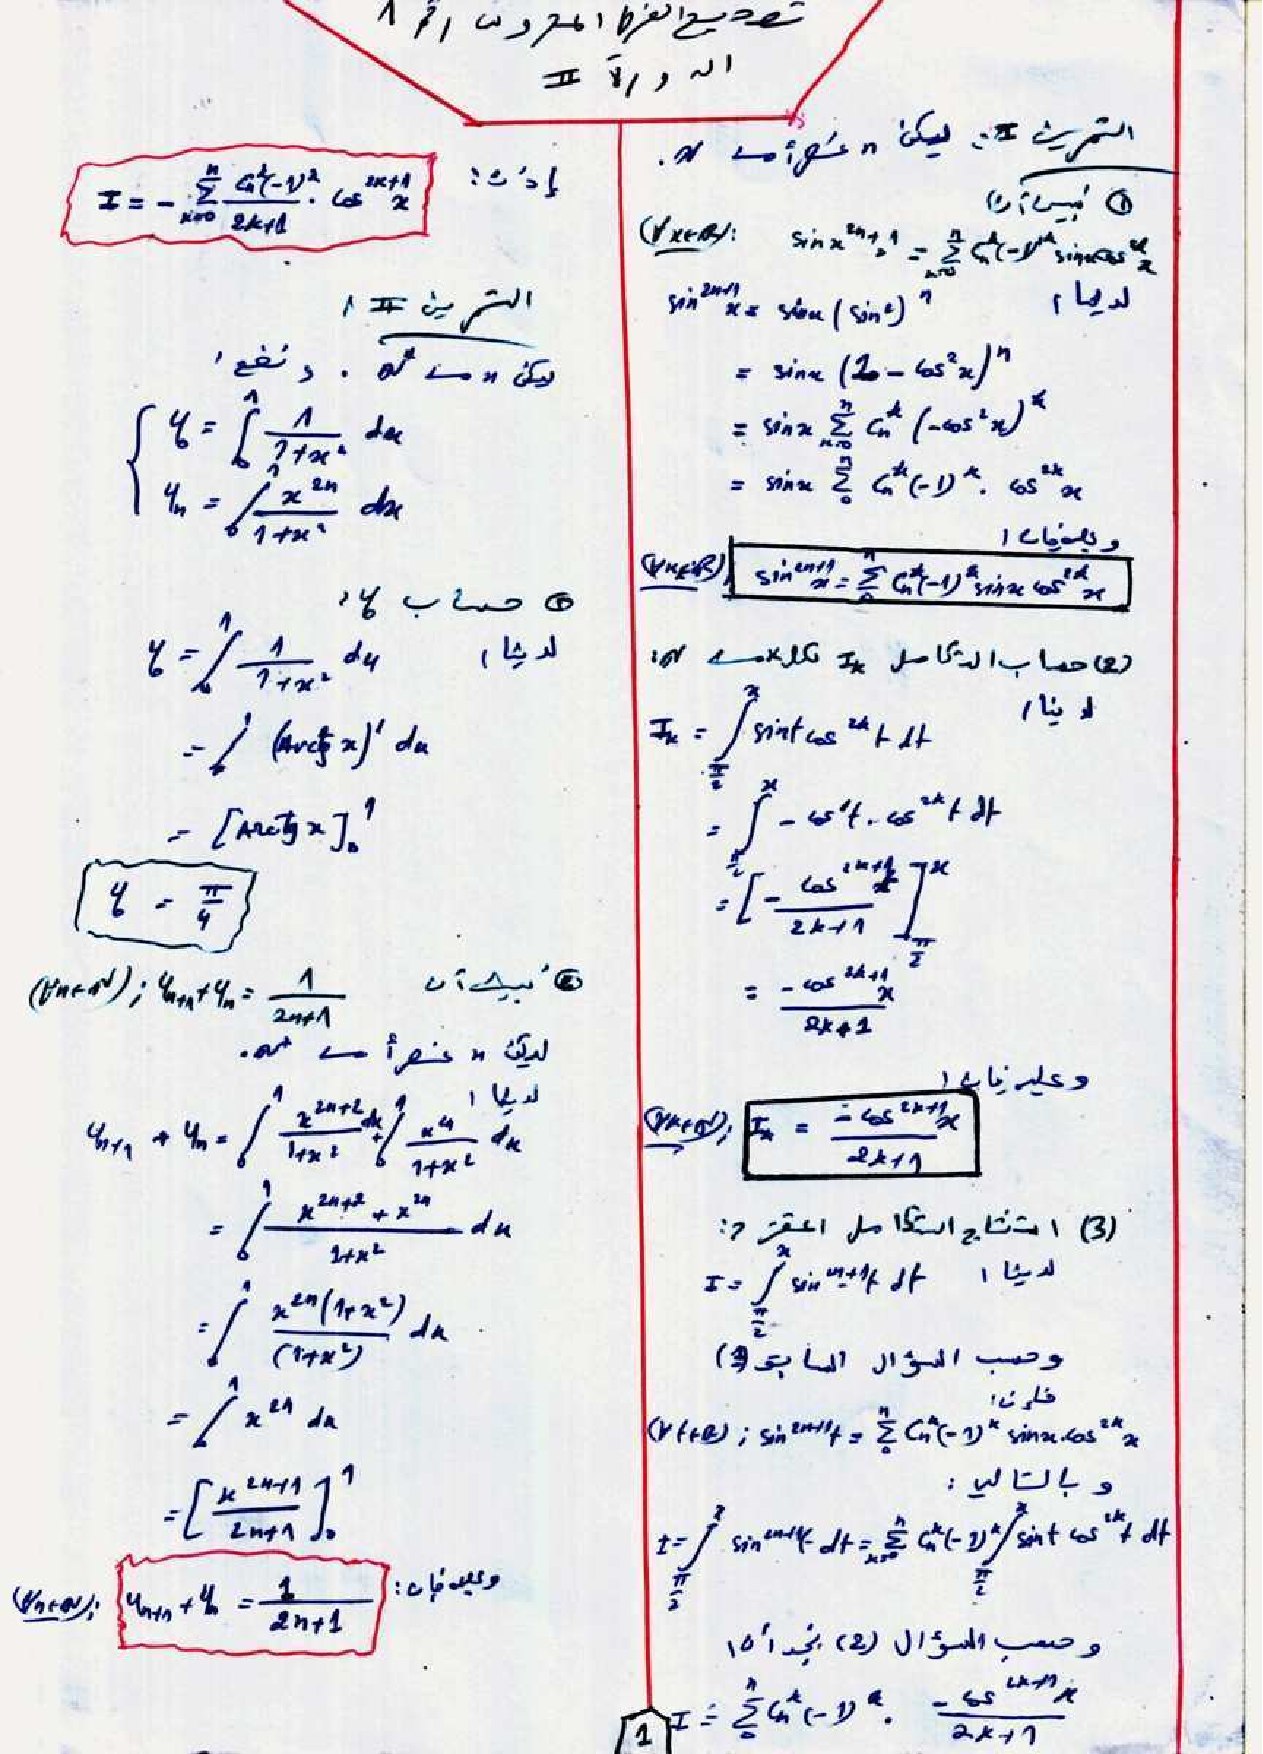 تصحيح الفرض المحروس رقم 1
الدورة II
التمرين I: ليكن n عنصرا من ℕ.
① نبين أن
(∀x∈ℝ): sin x^{2n+1} = Σ_{k=0}^{n} C_n^k (-1)^k sin x cos^{2k} x
لدينا:
sin^{2n+1} x = sin x (sin²)^n
= sin x (1 - cos² x)^n
= sin x Σ_{k=0}^{n} C_n^k (-cos² x)^k
= sin x Σ_0^n C_n^k (-1)^k . cos^{2k} x
وبالتالي فإن:
(∀x∈ℝ) sin^{2n+1} x = Σ_0^n C_n^k (-1)^k sin x cos^{2k} x
(2) حساب التكامل I_k لكل k من ℕ:
لدينا:
I_k = ∫_{π/2}^{x} sin t cos^{2k} t dt
= ∫_{π/2}^{x} - cos' t . cos^{2k} t dt
= [- cos^{2k+1} t / 2k+1]_{π/2}^{x}
= -cos^{2k+1} x / 2k+1
وعليه فإن:
(∀k∈ℕ); I_k = -cos^{2k+1} x / 2k+1
(3) استنتاج التكامل المقترح:
لدينا: I = ∫_{π/2}^{x} sin^{2n+1} t dt
وحسب السؤال السابق (1)
فإن:
(∀t∈ℝ); sin^{2n+1} t = Σ_0^n C_n^k (-1)^k sin x . cos^{2k} x
وبالتالي:
I = ∫_{π/2}^{x} sin^{2n+1} t dt = Σ_{k=0}^{n} C_n^k (-1)^k ∫_{π/2}^{x} sin t cos^{2k} t dt
وحسب السؤال (2) نجد أن:
I = Σ_0^n C_n^k (-1)^k . -cos^{2k+1} x / 2k+1
إذن: I = - Σ_{k=0}^{n} C_n^k (-1)^k / 2k+1 . cos^{2k+1} x
التمرين II:
ليكن n من ℕ*. ونضع:
{ U_0 = ∫_0^1 1 / 1+x² dx
U_n = ∫_0^1 x^{2n} / 1+x² dx
① حساب U_0:
لدينا: U_0 = ∫_0^1 1 / 1+x² dx
= ∫_0^1 (Arctg x)' dx
= [Arctg x]_0^1
U_0 = π/4
② نبين أن (∀n∈ℕ); U_{n+1} + U_n = 1 / 2n+1
ليكن n عنصرا من ℕ*.
لدينا:
U_{n+1} + U_n = ∫_0^1 x^{2n+2} / 1+x² dx + ∫_0^1 x^n / 1+x² dx
= ∫_0^1 x^{2n+2} + x^{2n} / 1+x² dx
= ∫_0^1 x^{2n} (1+x²) / (1+x²) dx
= ∫_0^1 x^{2n} dx
= [x^{2n+1} / 2n+1]_0^1
وعليه فإن: (∀n∈ℕ); U_{n+1} + U_n = 1 / 2n+1
1